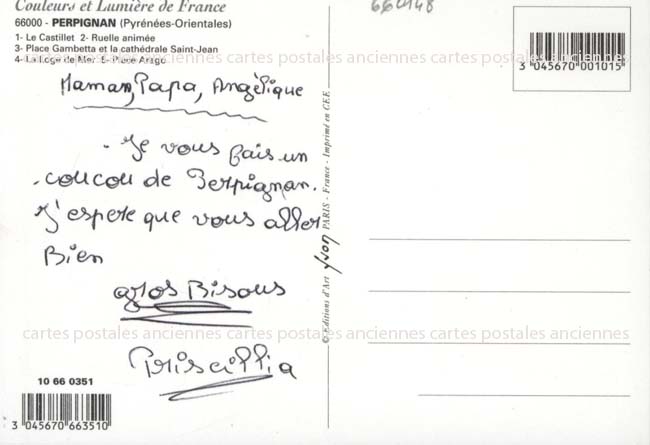 Couleurs et Lumière de France
66000 - PERPIGNAN (Pyrénées-Orientales)
1- Le Castillet 2- Ruelle animée
3- Place Gambetta et la cathédrale Saint-Jean
4- La Loge de Mer 5- Place Arago
cartes postales anciennes cartes postales anciennes
Maman, Papa, Angélique
Je vous fais un
coucou de Perpignan.
J'espere que vous aller
Bien
gros Bisous
cartes postales anciennes cartes postales anciennes
Priscillia
10 66 0351
3 045670 663510
© Editions d'Art yvon PARIS - France - Imprimé en CEE
660148
3 045670 001015